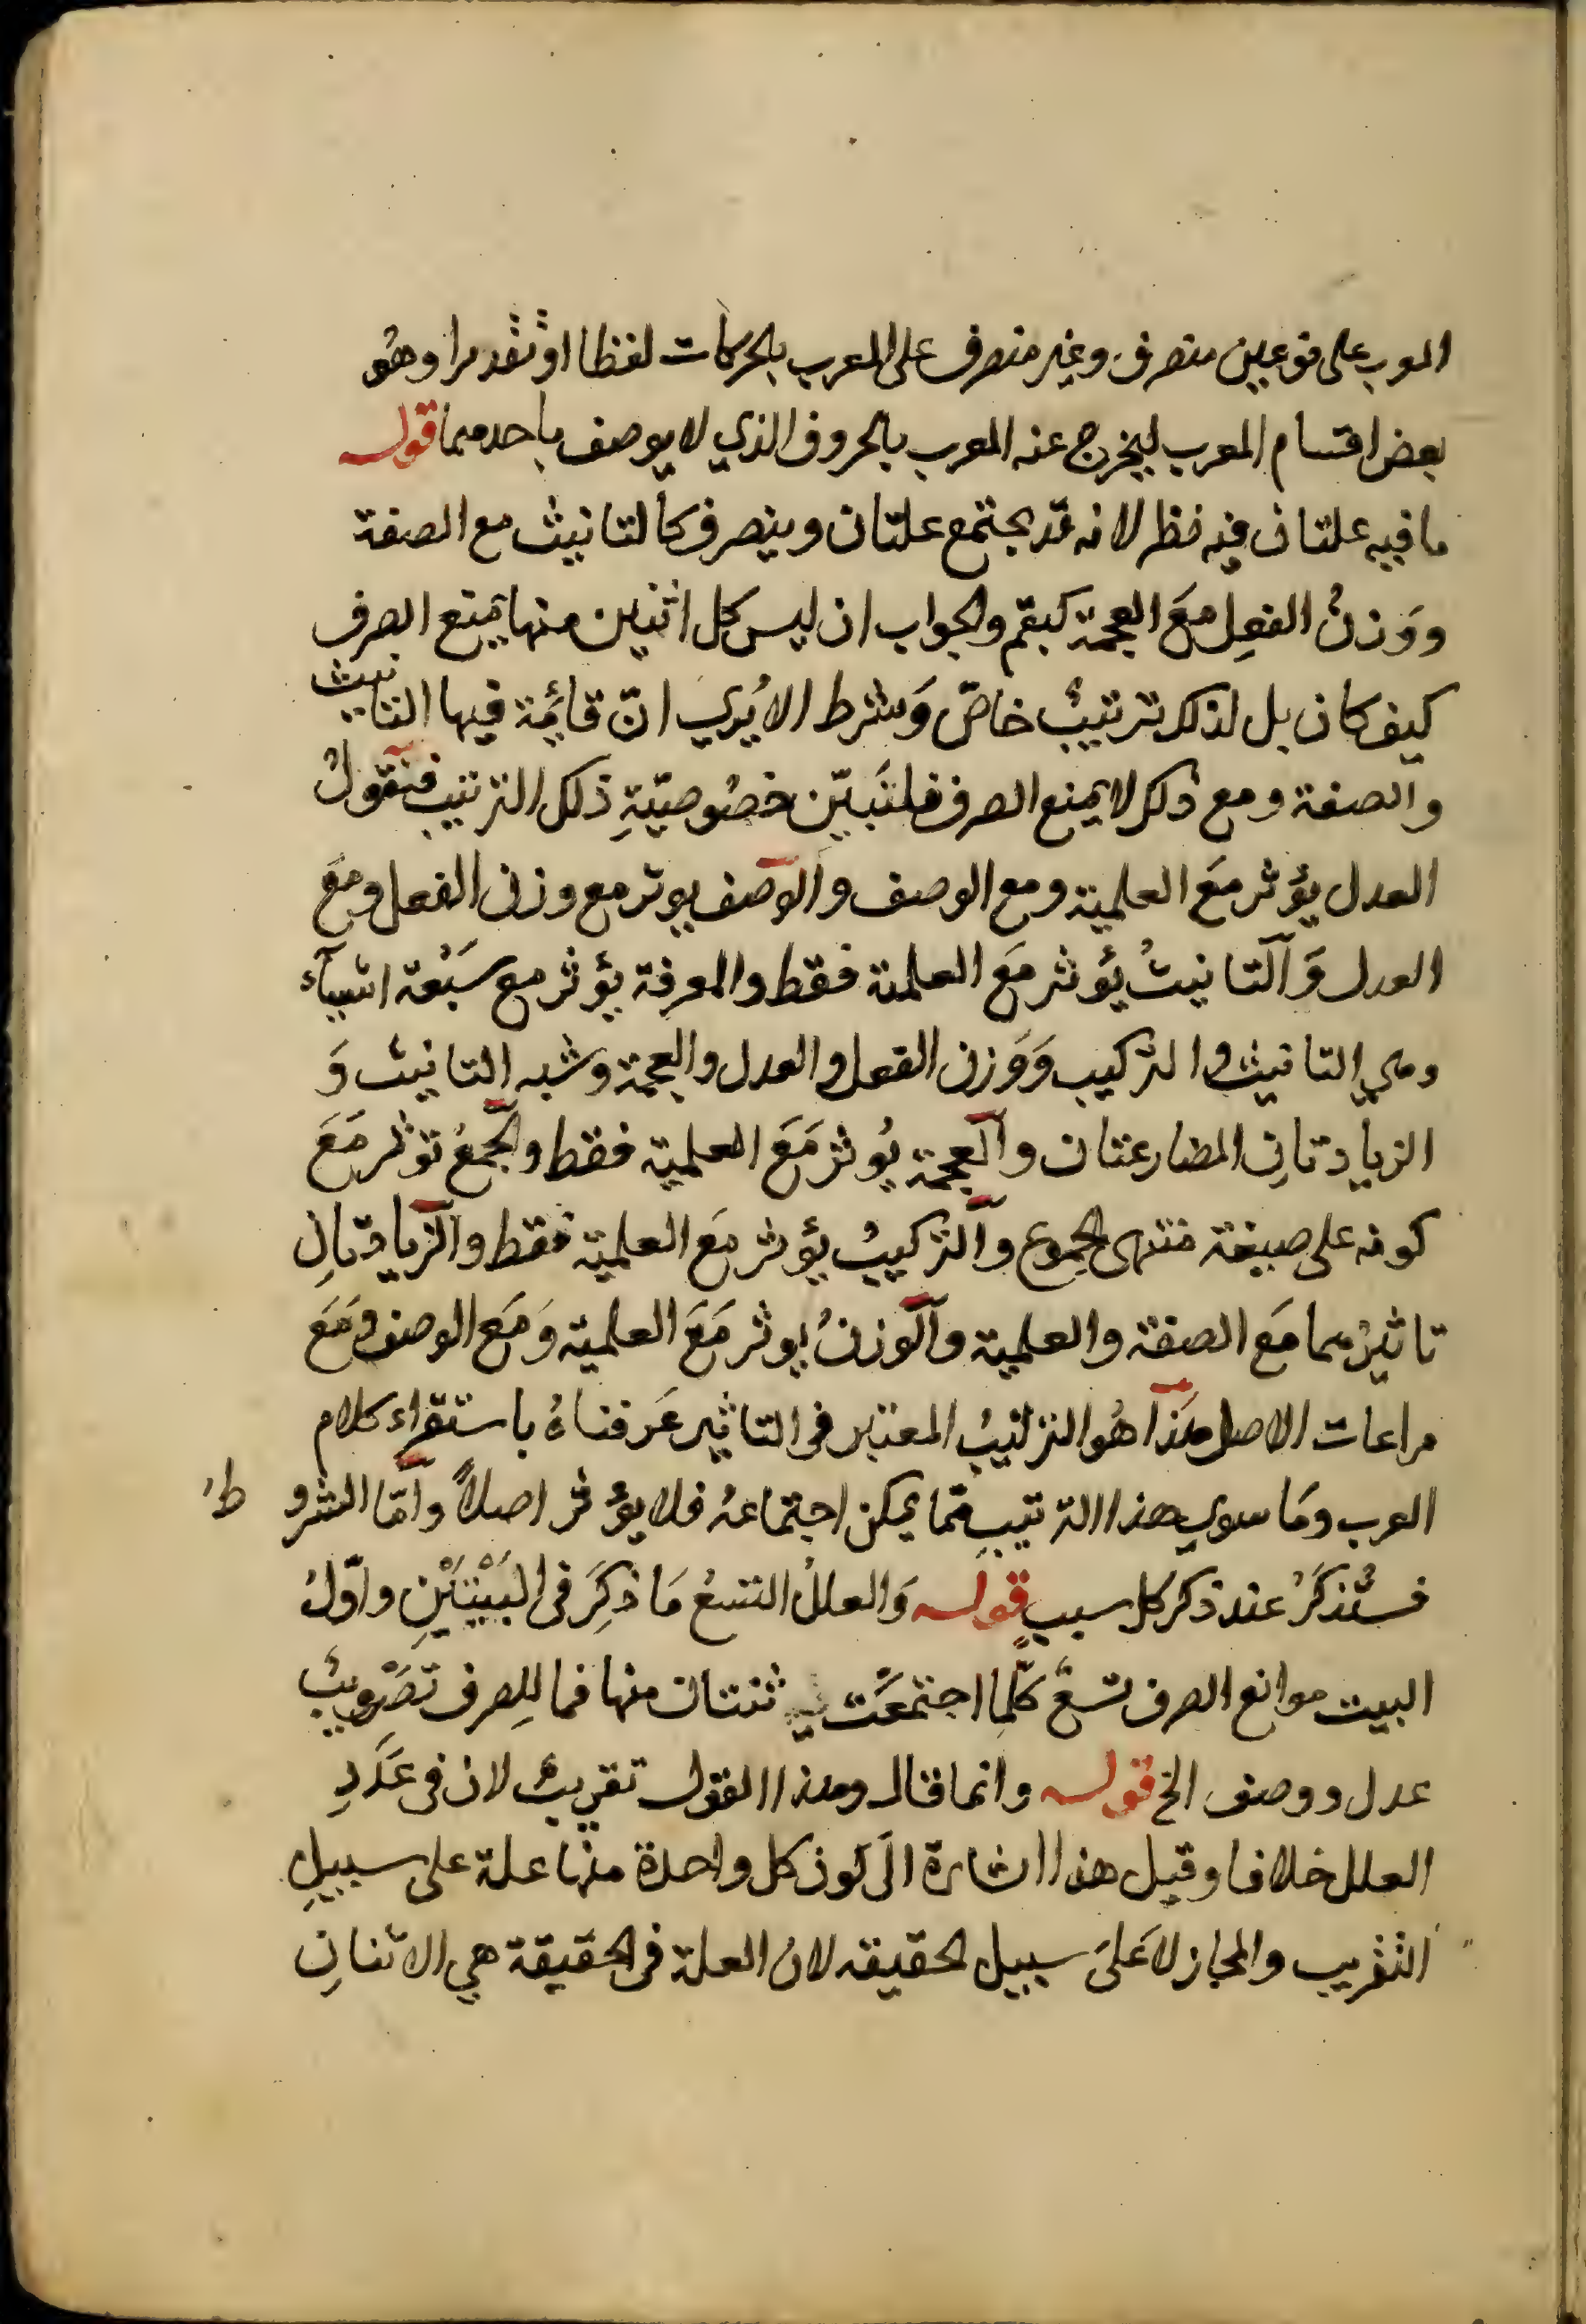 المعرب على نوعين منصرف وغير منصرف على المعرب بالحركات لفظا او تقديرا وهو
بعض اقسام المعرب ليخرج عنه المعرب بالحروف الذي لا يوصف باحدهما قوله
ما فيه علتان فيه نظر لانه قد يجتمع علتان وينصرف كالتانيث مع الصفة
ووَزنُ الفعِل معَ العجمة كبقّم والجواب ان ليس كل اثنين منها يمنع الصرف
كيف كان بل لذلك ترتيبٌ خاصّ وَشرط الا يُري انّ قائمة فيها التانيث
والصفة ومع ذلك لا يمنع الصرف فلنَبيّن خصُوصيّةِ ذلك الترتيب فنقولُ
العدل يؤثر معَ العلمية ومع الوصف والوصف يوثر مع وزن الفعل ومَعَ
العدل وَالتانيثُ يؤثر مَع العلمية فقط والمعرفة يؤثر مع سَبْعة اشيآء
وهي التانيث والتركيب وَوَزن الفعل والعدل والعجمة وشبه التانيث وَ
الزيادتانِ المضارعتان والعجمة يُوثر مَعَ العلمية فقط والجمعُ توثر مَعَ
كونه على صيغة منتهى الجموع والتركيبُ يؤثر مَعَ العلميّة فقط والزيادتانِ
تاثيرُهما مَع الصفة والعلمية والوزنُ يوثر مَعَ العلميّة وَمَع الوصف وَمَعَ
مراعات الاصل هَذا هُو الترتيبُ المعتبر فى التاثير عَرفناهُ باستقراء كلام
العرب ومَا سوي هذا الترتيبِ ممّا يمكن اجتماعهُ فلا يؤثر اصلاً وامّا الشروط
فستُذكَرُ عند ذكر كل سببٍ قوله وَالعللُ التسعُ مَا ذكِرَ فى البَيْتَيْنِ واوّلُ
البيت موانع الصرف تسعٌ كلّما اجتمعَت ثنتان منها فما للِصرف تصْوِيبُ
عدل ووصف الخ قوله وانما قال وهذا القول تقريبٌ لان فى عَدَدِ
العلل خلافا وقيل هذا اشارة الَى كون كل واحدة منها علة على سبيلِ
التقريب والمجاز لا عَلىَ سبيل الحقيقه لان العلة فى الحقيقة هي الاثنانِ